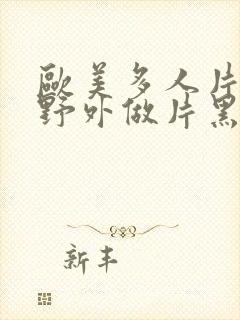 歐美多人片
野外做片黑
新丰